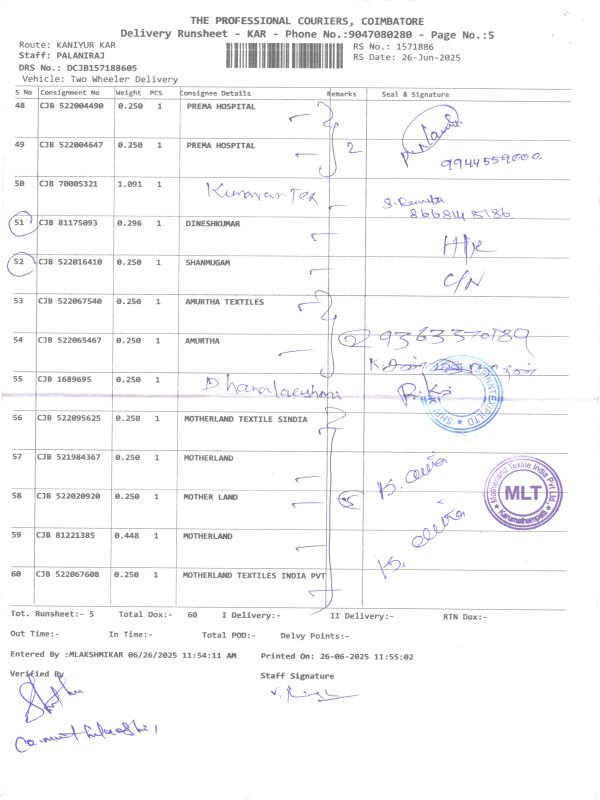 THE PROFESSIONAL COURIERS, COIMBATORE
Delivery Runsheet - KAR - Phone No.:9047080280 - Page No.:5
Route: KANIYUR KAR
RS No.: 1571886
Staff: PALANIRAJ
RS Date: 26-Jun-2025
DRS No.: DCJB157188605
Vehicle: Two Wheeler Delivery
S No Consignment No Weight PCS Consignee Details Remarks Seal & Signature
48 CJB 522004490 0.250 1 PREMA HOSPITAL
49 CJB 522004647 0.250 1 PREMA HOSPITAL 2
9944559000
50 CJB 70005321 1.091 1
8668148786
51 CJB 81175093 0.296 1 DINESHKUMAR
52 CJB 522016410 0.250 1 SHANMUGAM C/N
53 CJB 522067540 0.250 1 AMURTHA TEXTILES
54 CJB 522065467 0.250 1 AMURTHA 2 9363370189
55 CJB 1689695 0.250 1 Dhanalakshmi
56 CJB 522095625 0.250 1 MOTHERLAND TEXTILE SINDIA
57 CJB 521984367 0.250 1 MOTHERLAND
58 CJB 522020920 0.250 1 MOTHER LAND 5
Motherland Textile India Pvt Ltd.
MLT
Karumathampatti
59 CJB 81221385 0.448 1 MOTHERLAND
60 CJB 522067608 0.250 1 MOTHERLAND TEXTILES INDIA PVT
Tot. Runsheet:- 5 Total Dox:- 60 I Delivery:- II Delivery:- RTN Dox:-
Out Time:- In Time:- Total POD:- Delvy Points:-
Entered By :MLAKSHMIKAR 06/26/2025 11:54:11 AM Printed On: 26-06-2025 11:55:02
Verified By
Staff Signature